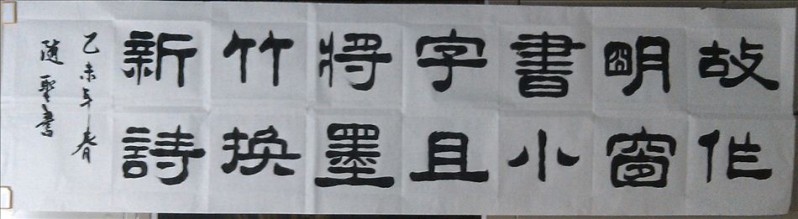 故作
明窗
書小
字且
將墨
竹換
新詩
乙未年春
随聖書